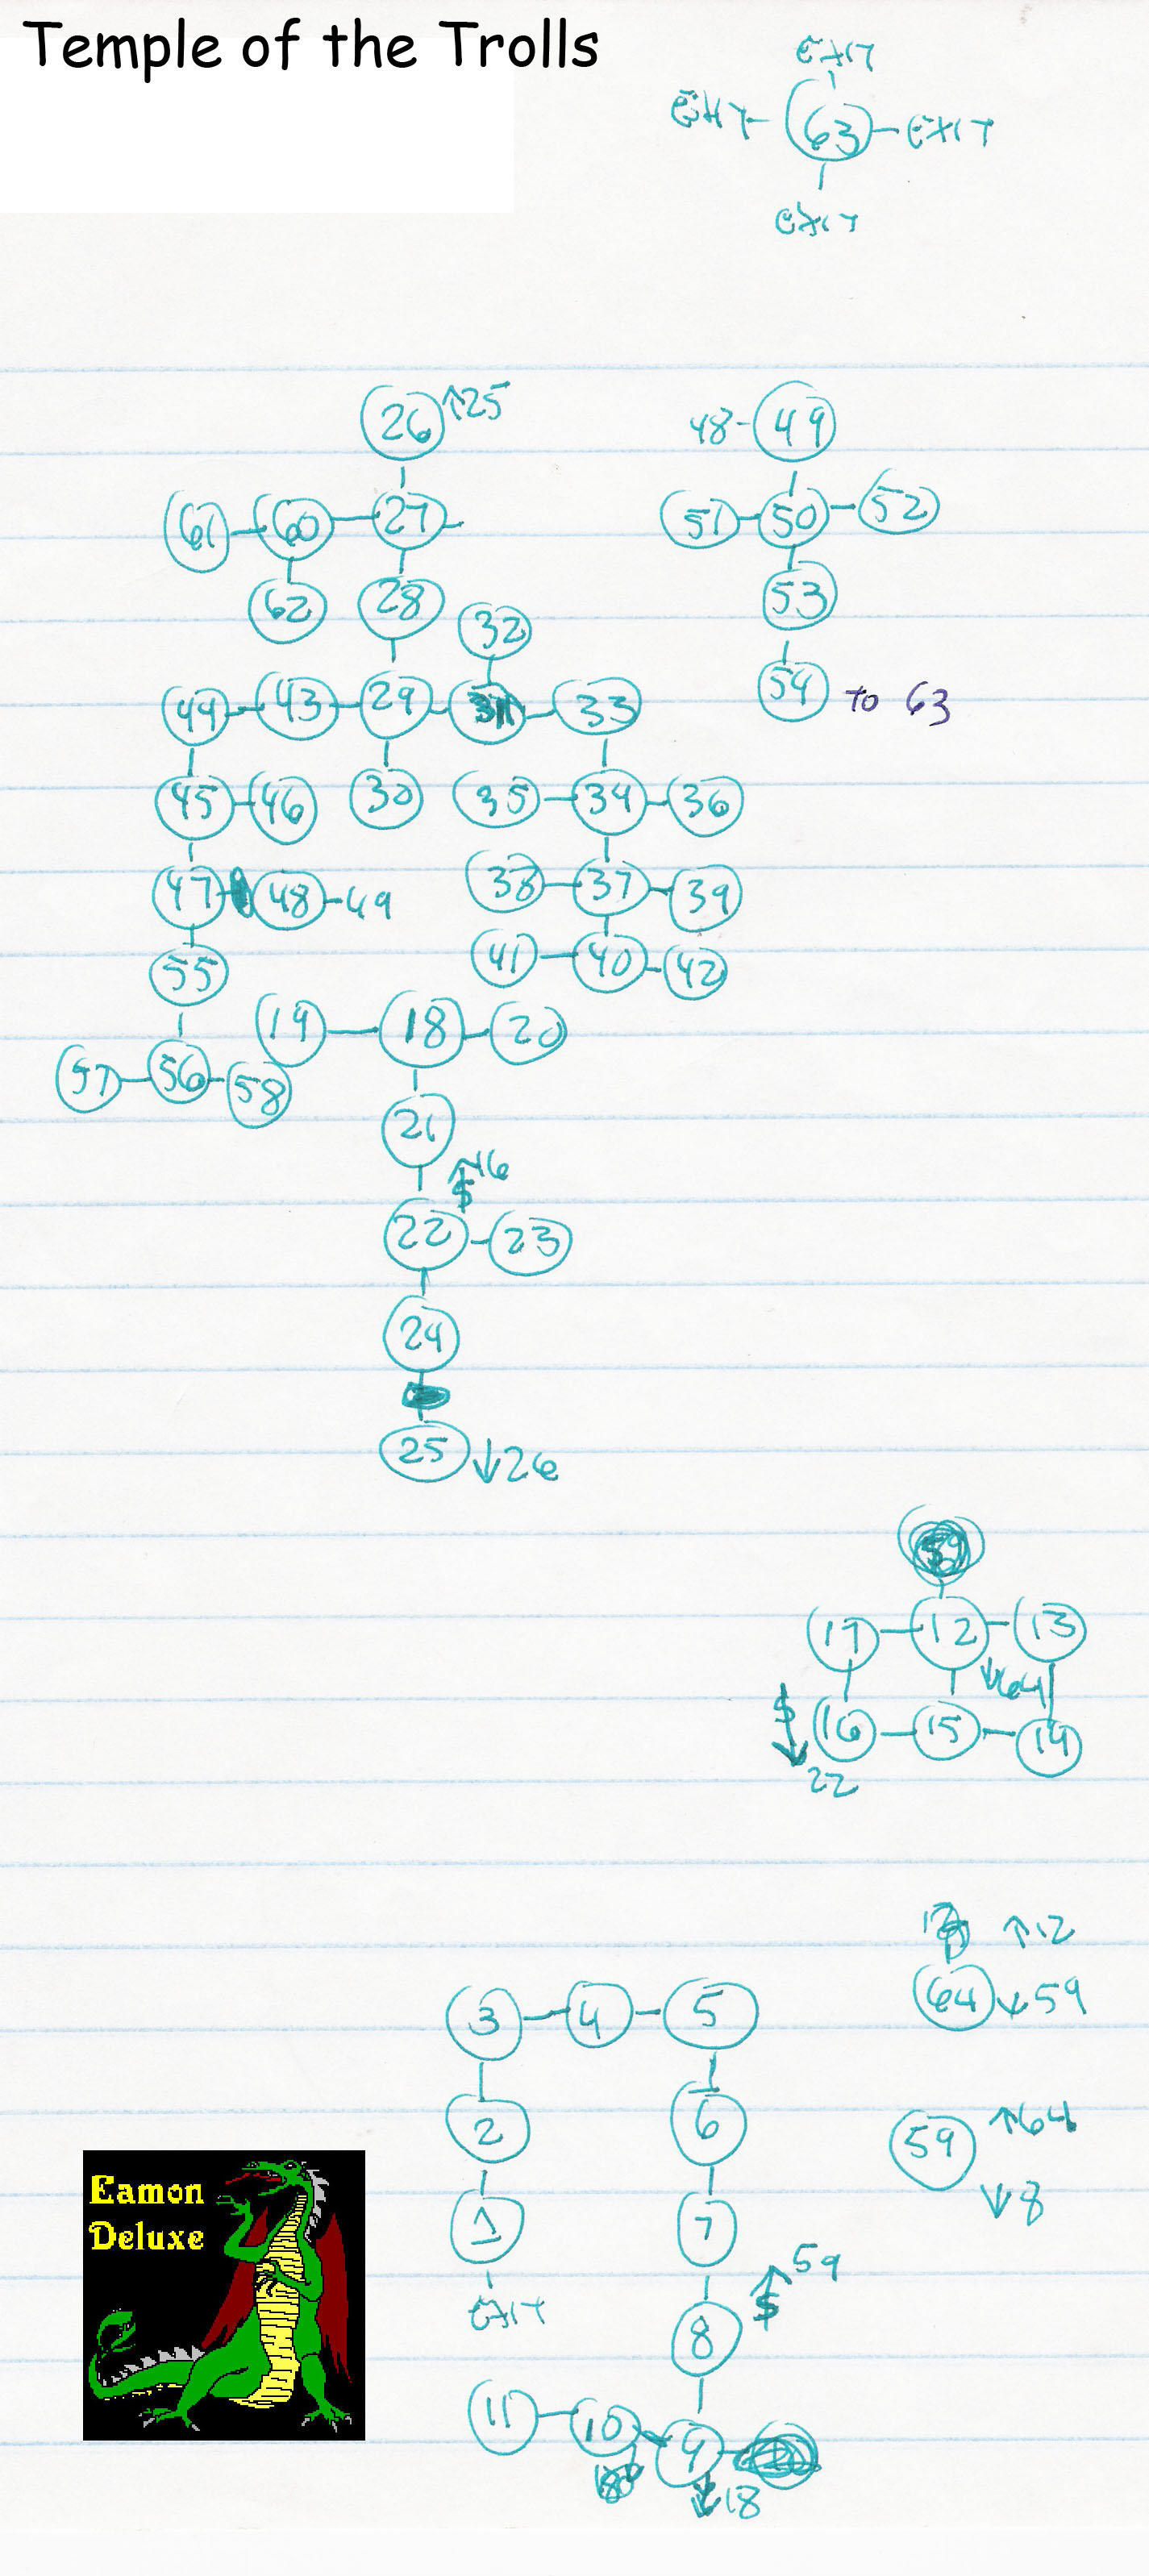 Temple of the Trolls
EXIT
EXIT 63 EXIT
EXIT
26 ↑25
48 49
61 60 27
51 50 52
62 28
53
32
44 43 29 31 33
54 TO 63
45 46 30 35 34 36
47 48 49 38 37 39
41 40 42
55
19 18 20
57 56 58
21
↑16
$
22 23
24
25 ↓26
17 12 13
↓64
$
16 15 14
22
↑12
3 4 5
64 ↓59
2 6
59 ↑64
↓8
Eamon
Deluxe
1 7
59
$
EXIT
8
11 10 9
↓18